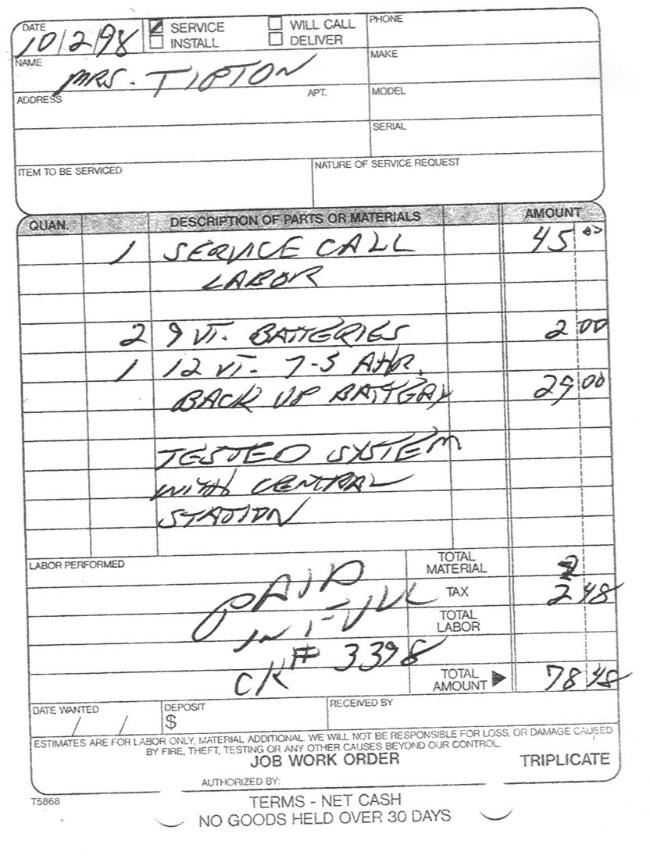 DATE
10/2/98
SERVICE
INSTALL
WILL CALL
DELIVER
PHONE
NAME
MRS. TIPTON
MAKE
ADDRESS
APT.
MODEL
SERIAL
ITEM TO BE SERVICED
NATURE OF SERVICE REQUEST
QUAN. DESCRIPTION OF PARTS OR MATERIALS AMOUNT
1 SERVICE CALL 45 00
LABOR
2 9 VT. BATTERIES 2 00
1 12 VT. 7-5 AHR.
BACK UP BATTERY 29 00
TESTED SYSTEM
WITH CENTRAL
STATION
LABOR PERFORMED
PAID
IN FULL
CK # 3398
TOTAL
MATERIAL
TAX 2 48
TOTAL
LABOR
TOTAL
AMOUNT 78 48
DATE WANTED
/ /
DEPOSIT
$
RECEIVED BY
ESTIMATES ARE FOR LABOR ONLY, MATERIAL ADDITIONAL. WE WILL NOT BE RESPONSIBLE FOR LOSS, OR DAMAGE CAUSED
BY FIRE, THEFT, TESTING OR ANY OTHER CAUSES BEYOND OUR CONTROL.
JOB WORK ORDER TRIPLICATE
AUTHORIZED BY:
T5868
TERMS - NET CASH
NO GOODS HELD OVER 30 DAYS